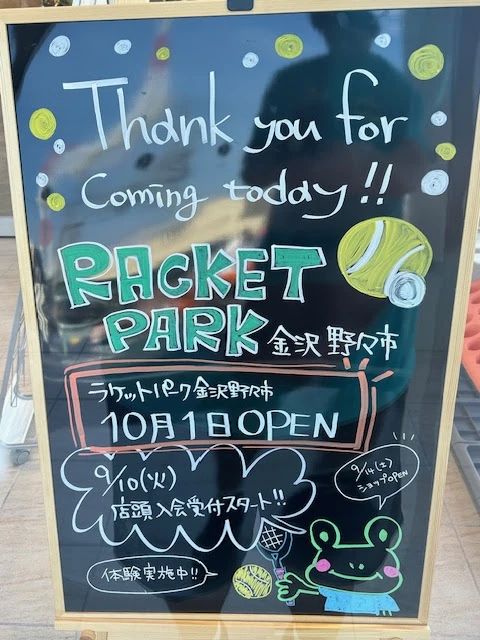 Thank you for
Coming today!!
RACKET
PARK 金沢 野々市
ラケットパーク金沢野々市
10月1日OPEN
9/10(火)
店頭入会受付スタート!!
9/14(土)
ショップOPEN
体験実施中!!